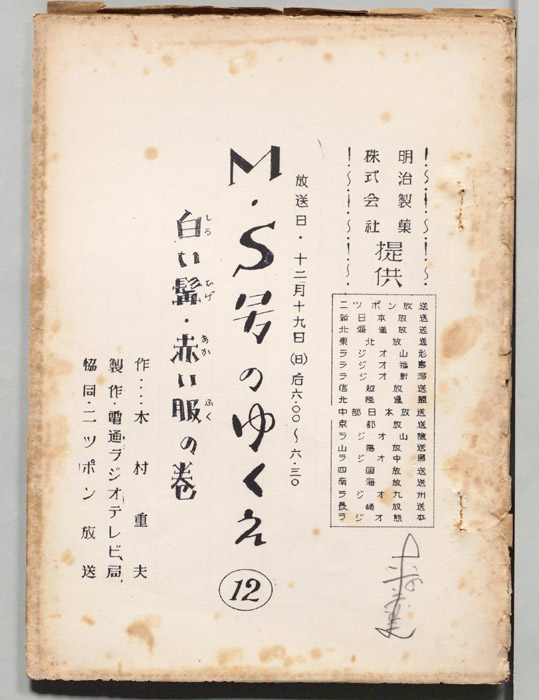 明治製菓
株式会社
提供
ニッポン放送
新日本放送
北海道放送
東北放送
ラジオ山形
ラジオ福島
ラジオ新潟
信越放送
北陸
中部日本放送
京都放送
ラジオ山陰
山陽放送
ラジオ中国
四国放送
南海放送
ラジオ九州
長崎放送
ラジオ熊本
放送日・十二月十九日(日)后六.〇〇〜六.三〇
M・S号のゆくえ
12
白い髯・赤い服の巻
しろ ひげ あか ふく
作‥‥木村重夫
製作・電通ラジオテレビ局
協同・ニッポン放送